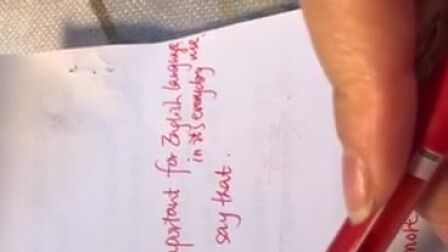 important for English language
in it's everyday use.
say that.
more